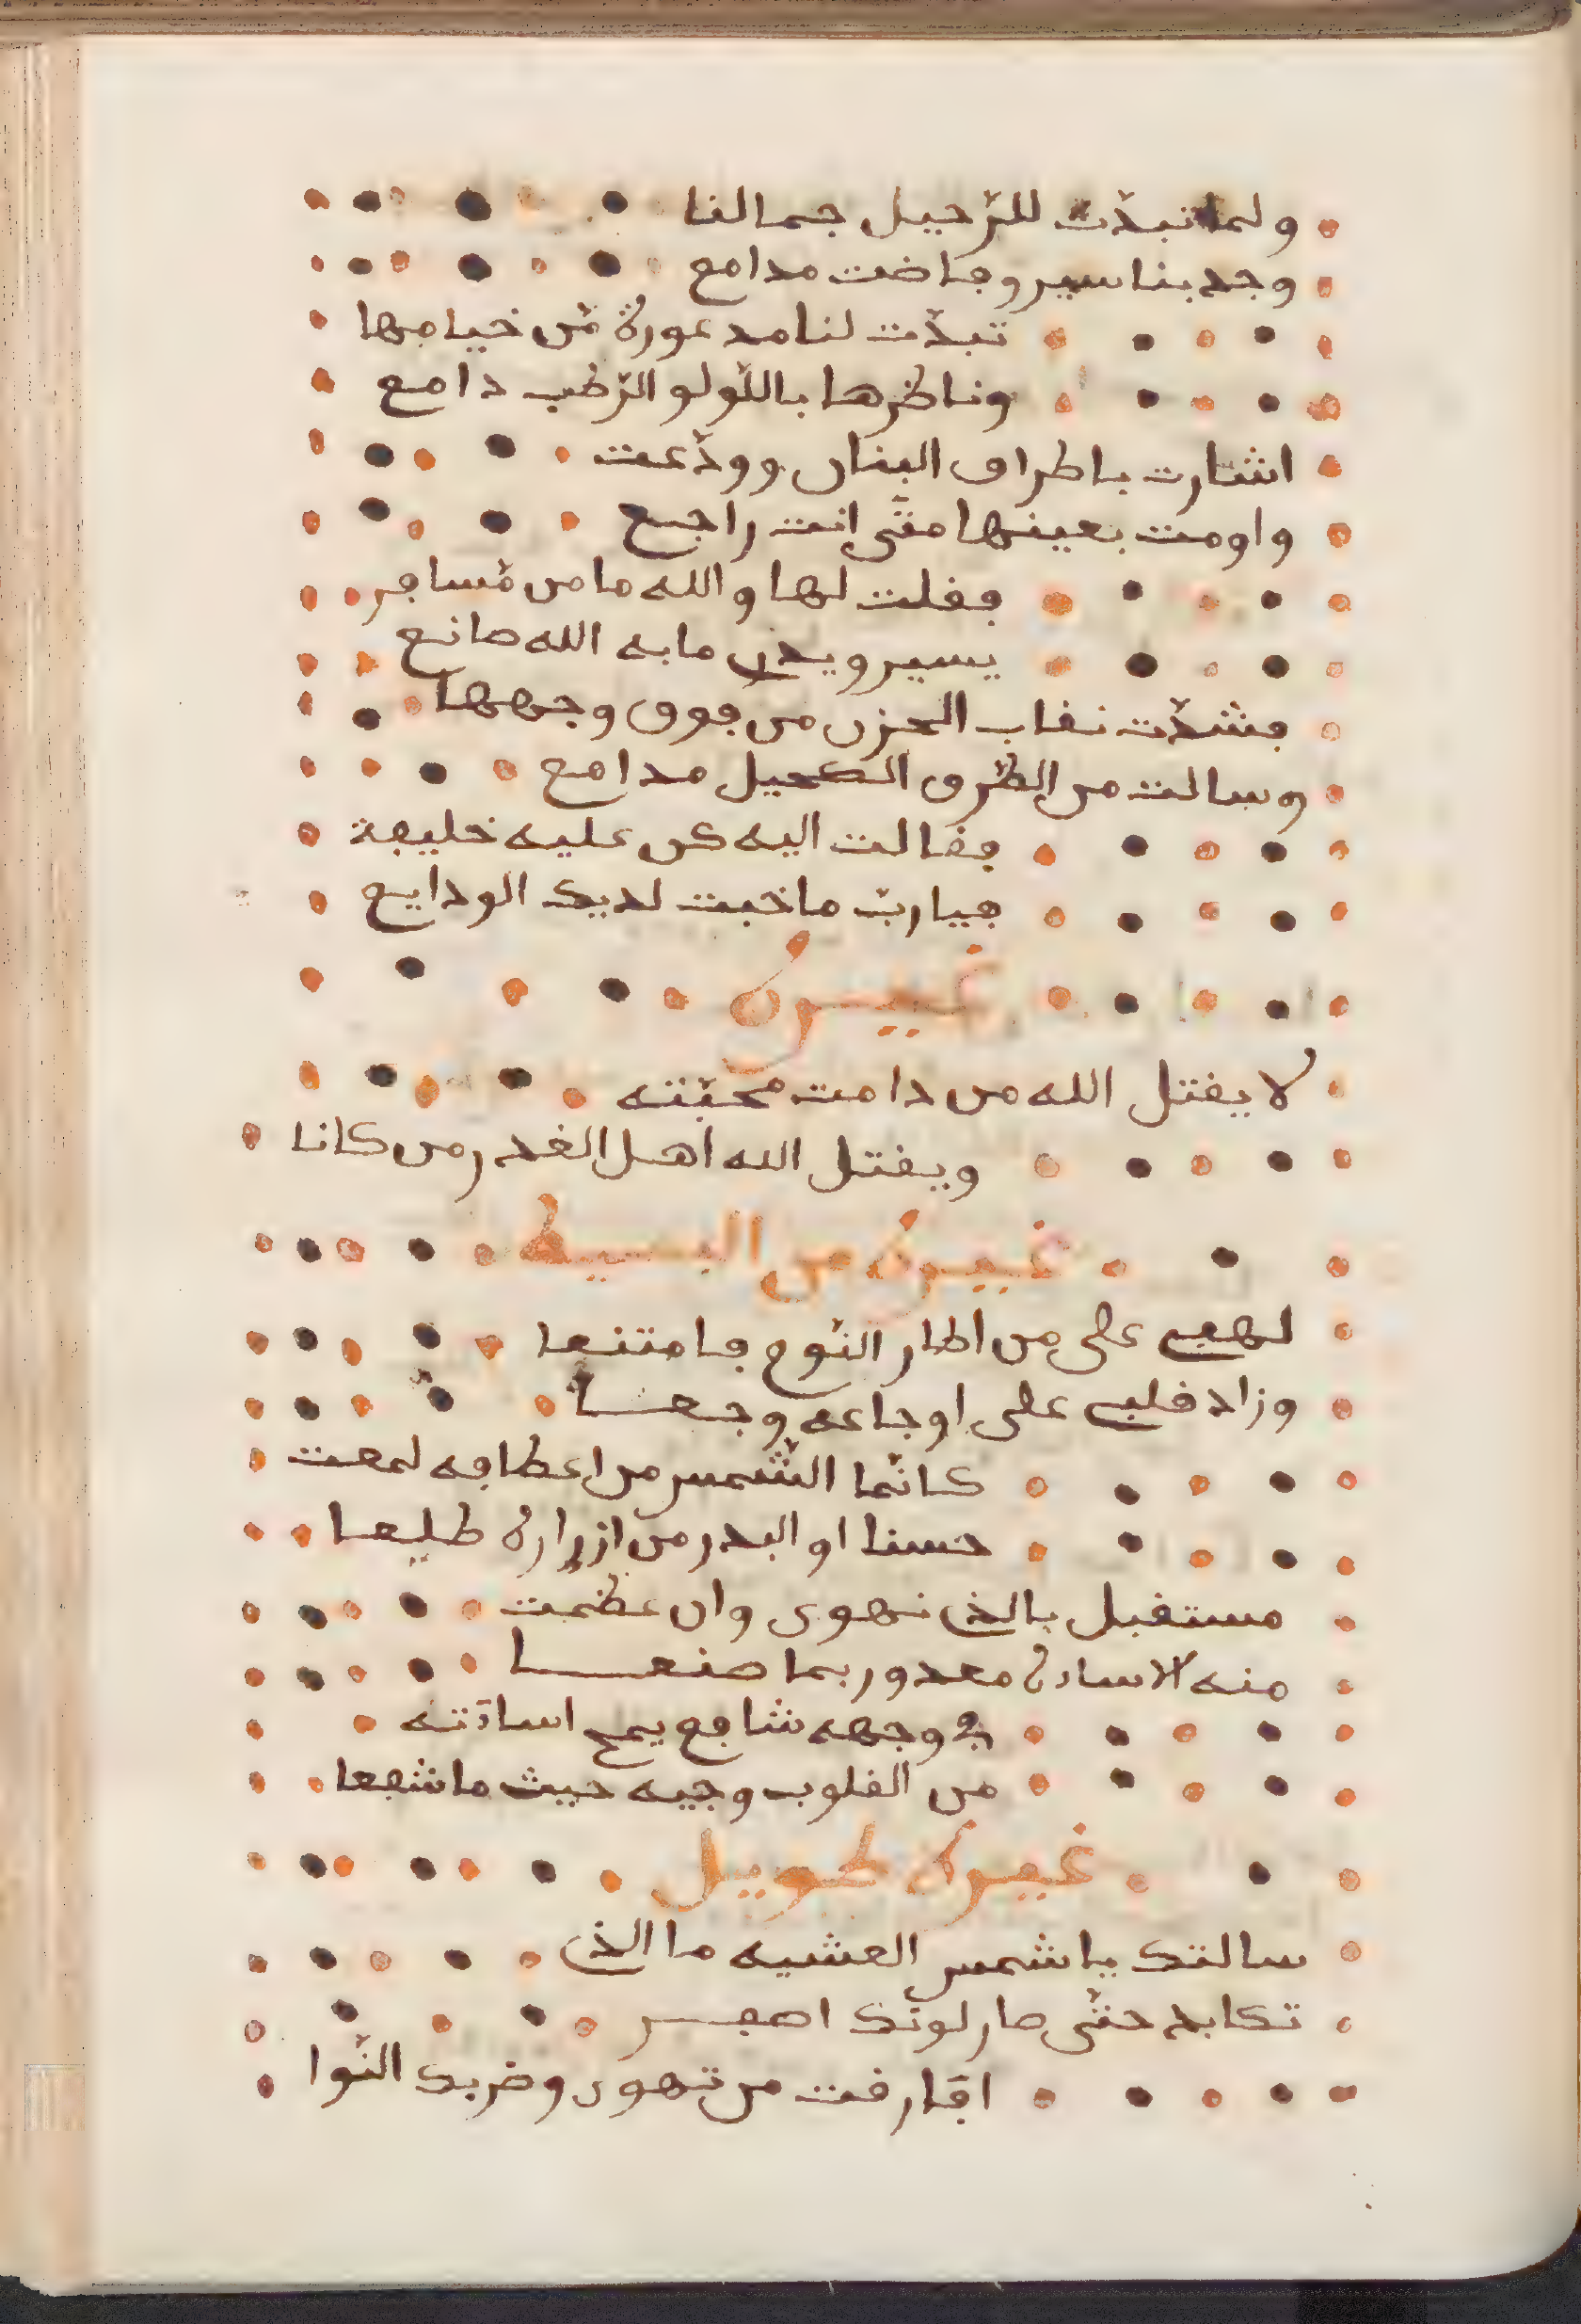 ولما تبدّت للرّحيل جمالنا
وجد بنا سير وفاضت مدامع
تبدّت لنا مدعورة مّن خيامها
وناظرها باللّولو الرّطب دامع
اشارت باطراف البنان وودّعت
واومت بعينها متّى انت راجع
فقلت لها والله ما من مّسافر
يسير ويدرى ما به الله صانع
فشدّت نقاب الحزن من فوق وجهها
وسالت من الطّرف الكحيل مدامع
فقالت اليه كن عليه خليفة
فيا ربّ ما خبت لديك الودايع
غيره
لا يقتل الله من دامت محبّته
ويقتل الله اهل الغدر من كانا
غيره من البسيط
لهفى على من اطار النّوم فامتنعا
وزاد قلبى على اوجاعه وجعا
كانّما الشّمس من اعطافه لمعت
حسنا او البدر من ازراره طلعا
مستقبل بالذى نهوى وان عظمت
منه الاساءة معدور بما صنعا
فى وجهه شافع يمح اساءته
من القلوب وجيه حيث ما شفعا
غيره طويل
سالتك يا شمس العشيه ما الذى
تكابد حتّى صار لونك اصفر
افارقت من تهوى وضربك النّوا